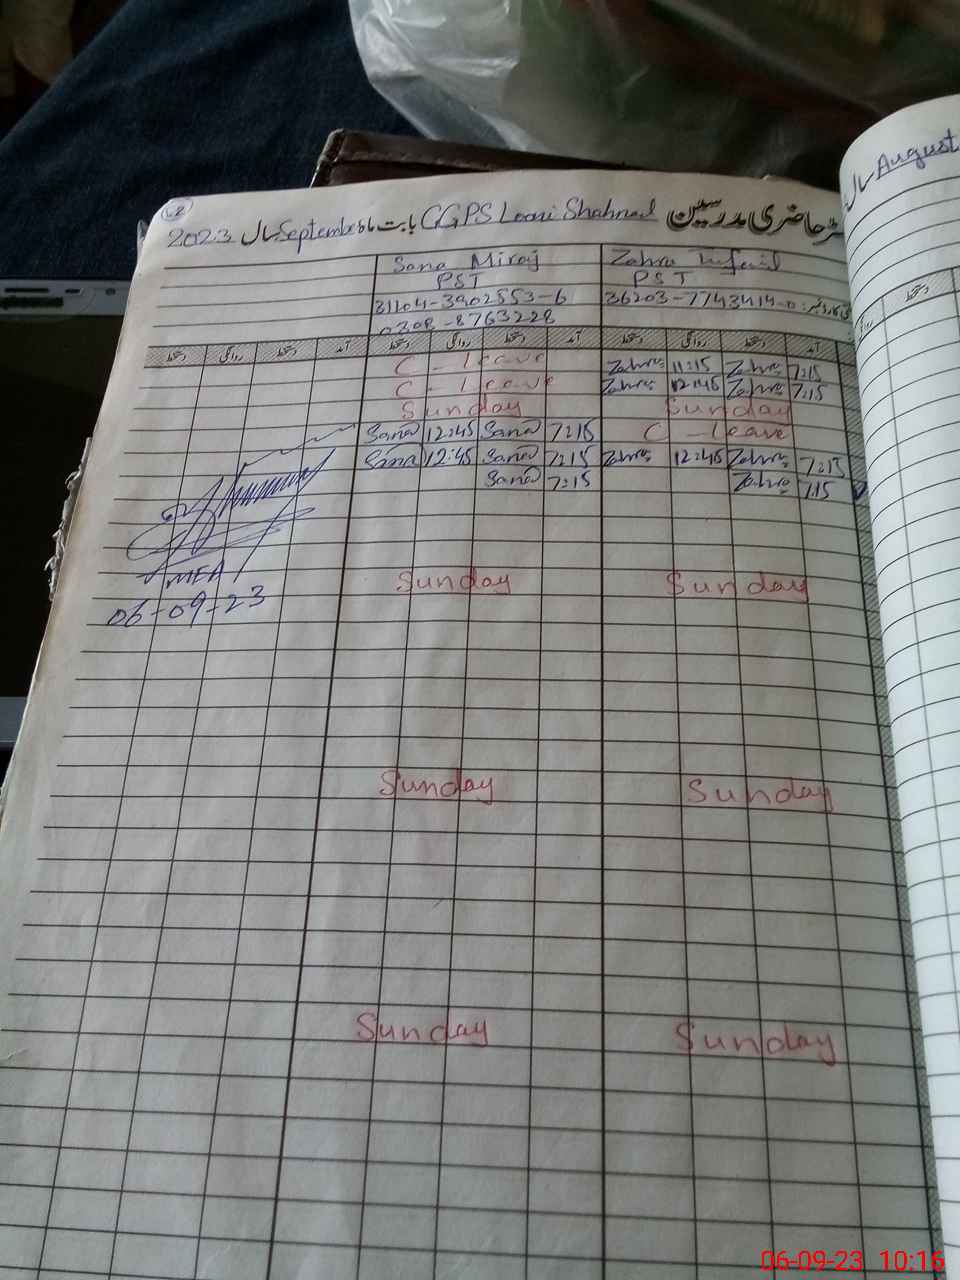 August سال
42
رجسٹر حاضری مدرسین GGPS Looni Shahnad بابت ماہ September سال 2023
Sana Miraj Zahra Tufail
PST PST
31104-3902553-6 36203-7743414-0
0308-8763228
دستخط روانگی دستخط آمد دستخط روانگی دستخط آمد دستخط روانگی دستخط آمد
C-Leave Zahra 11:15 Zahra 7:15
C-Leave Zahra 12:45 Zahra 7:15
Sunday Sunday
Sana 12:45 Sana 7:15 C-Leave
Sana 12:45 Sana 7:15 Zahra 12:45 Zahra 7:15
Sana 7:15 Zahra 7:15
Sunday Sunday
MEA
06-09-23
Sunday Sunday
Sunday Sunday
06-09-23 10:16